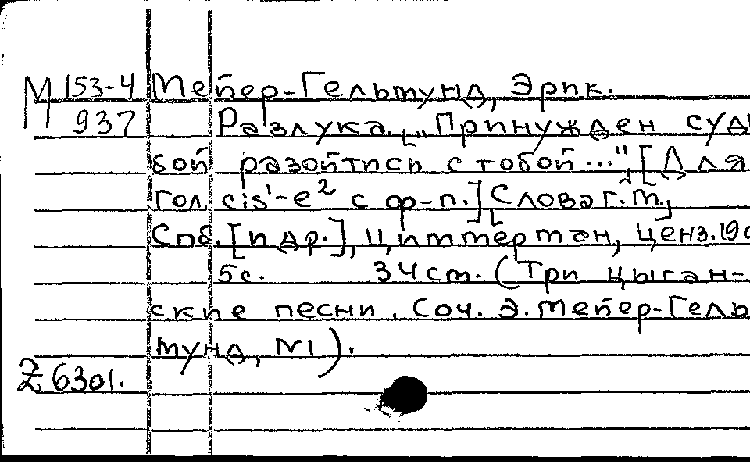 М 153-4 Мейер-Гельмунд, Эрик.
937 Разлука. „Принужден суд
бой разойтись с тобой..." [Для
гол. cis¹-e² с ф-п.] Слова Г. М.
Спб. [и др.], Циммерман, ценз. 190
5 с. 34 см. (Три цыган-
ские песни. Соч. Э. Мейер-Гель
мунд, №1).
Z 6301.